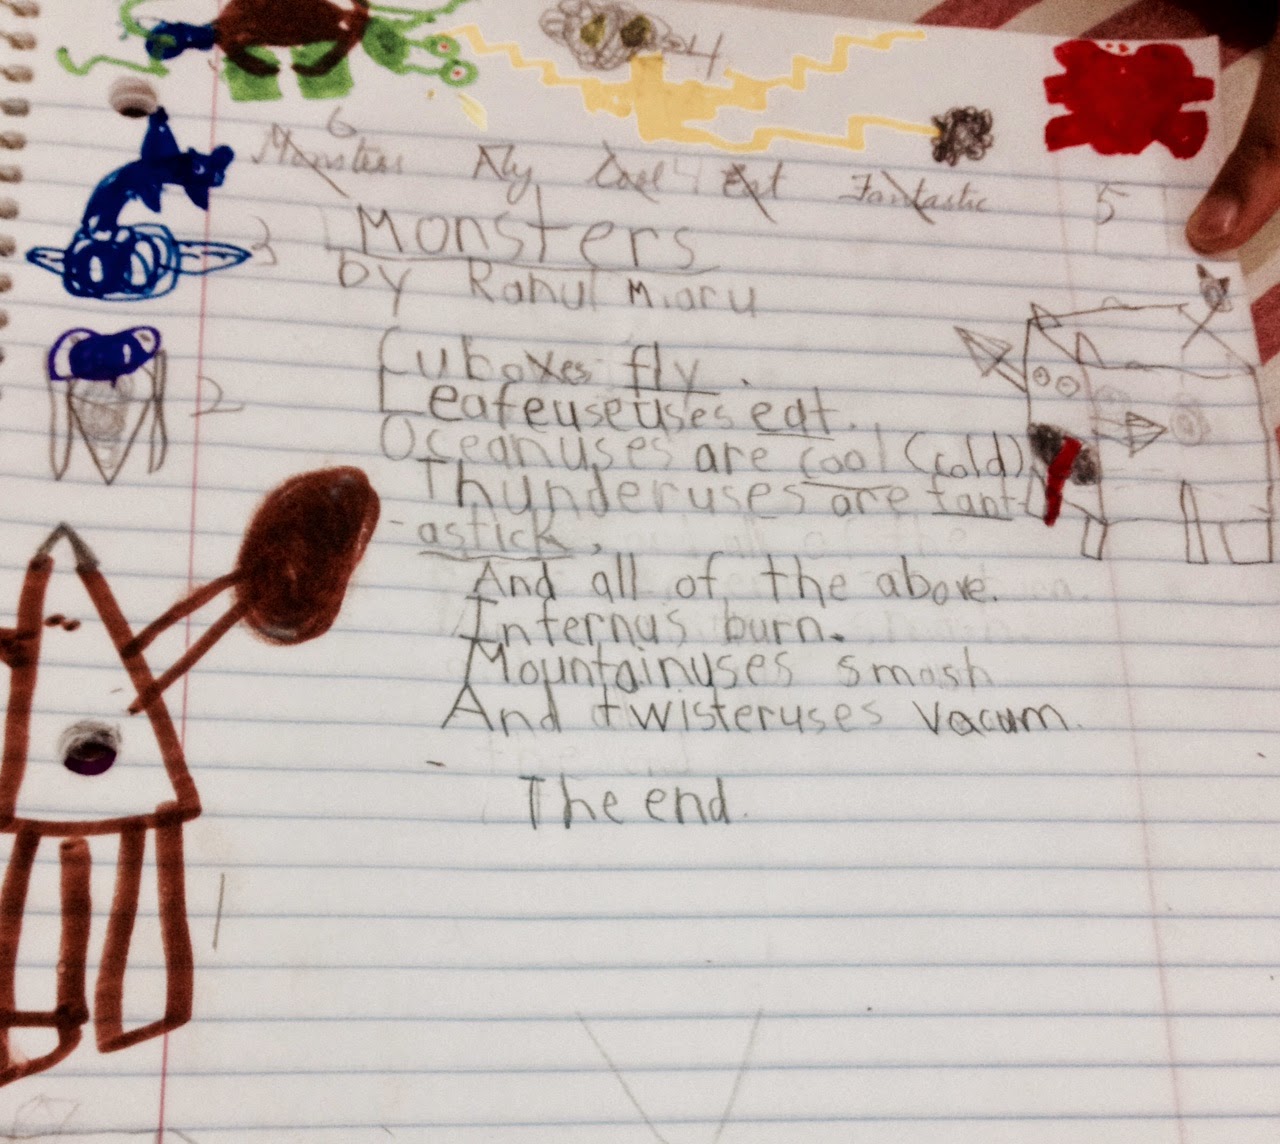 6
Monsters Fly Cool 4 Eat Fantastic 5
4
3
Monsters
by Rahul M.aru
Cuboxes fly.
Leafeuseuses eat.
2
Oceanuses are cool (cold)
Thunderuses are fant-
-astick,
And all of the above.
Infernus burn.
Mountainuses smash
And twisteruses vacum.
The end.
1
7